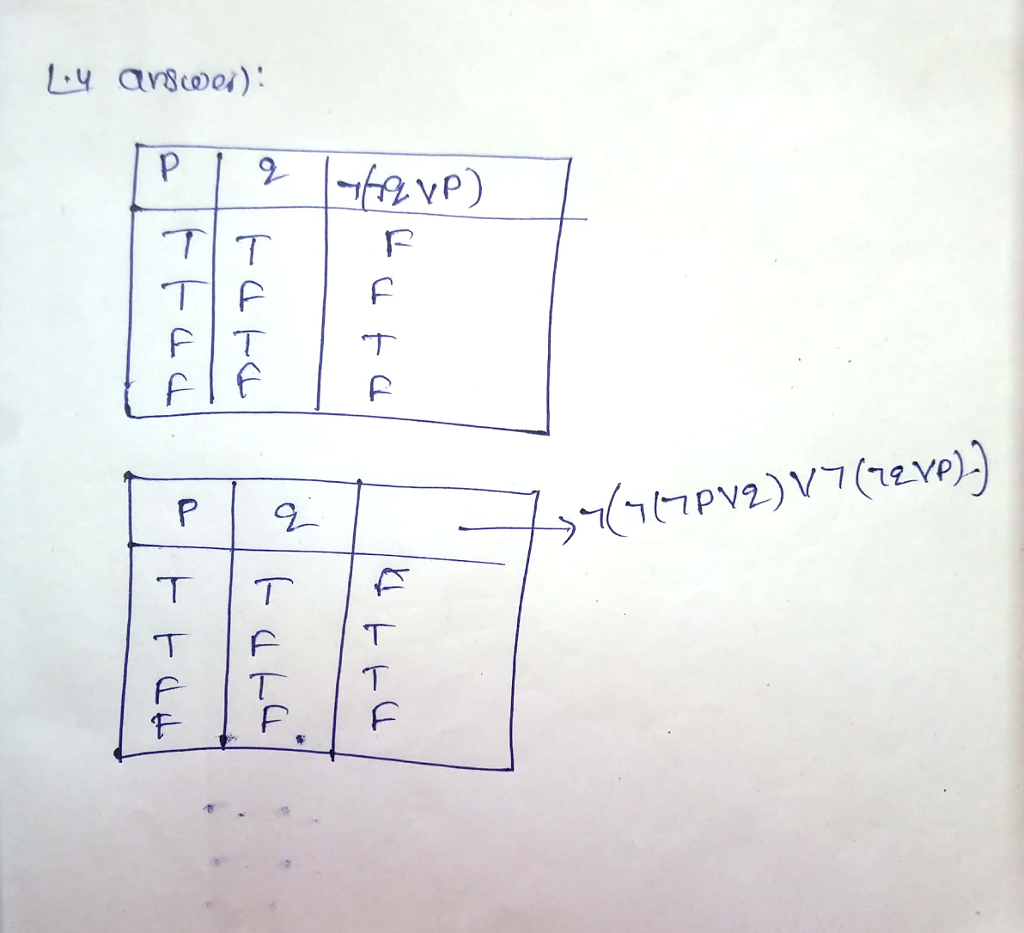 1.4 answer):
P q ¬(¬q ∨ P)
T T F
T F F
F T T
F F F
P q → ¬(¬(¬P ∨ q) ∨ ¬(¬q ∨ P))
T T F
T F T
F T T
F F F